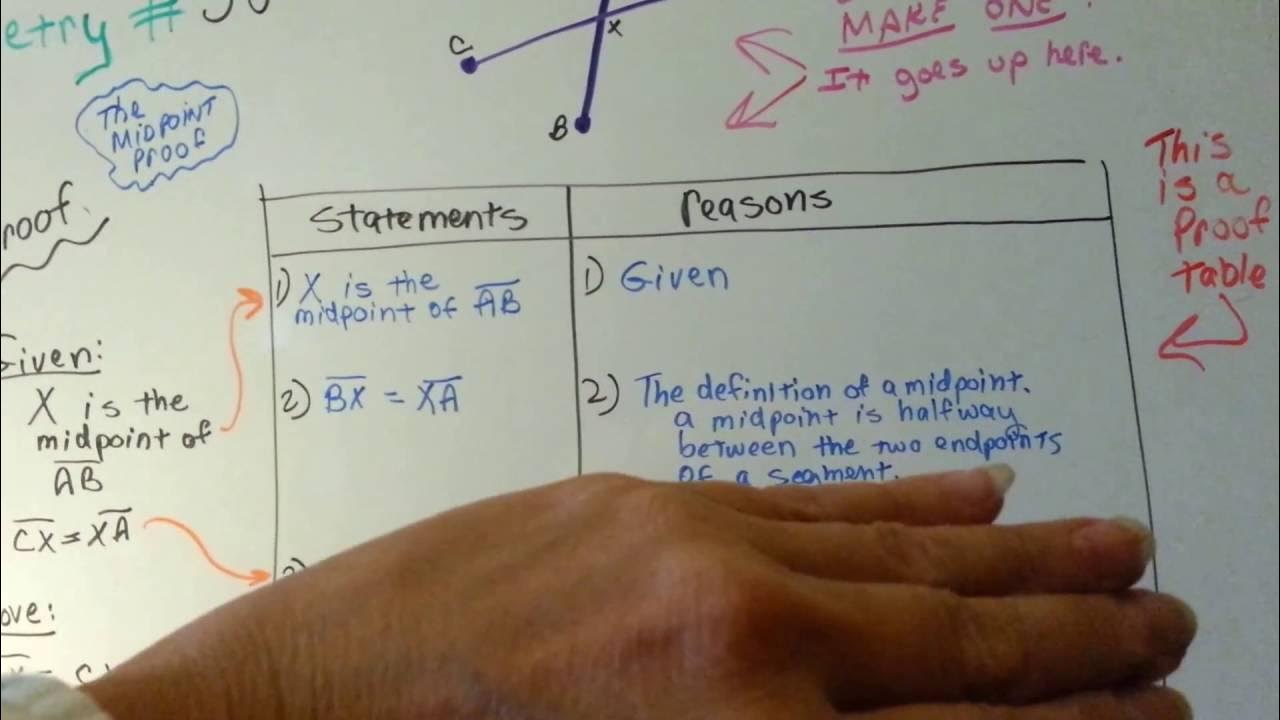 etry #
The
MIDPOINT
PROOF
roof.
C
X
B
MAKE ONE.
It goes up here.
This
is a
Proof
table
statements
reasons
1) X is the
midpoint of AB
1) Given
2) BX = XA
2) The definition of a midpoint.
a midpoint is halfway
between the two endpoints
of a segment.
Given:
X is the
midpoint of
AB
CX = XA
ove: